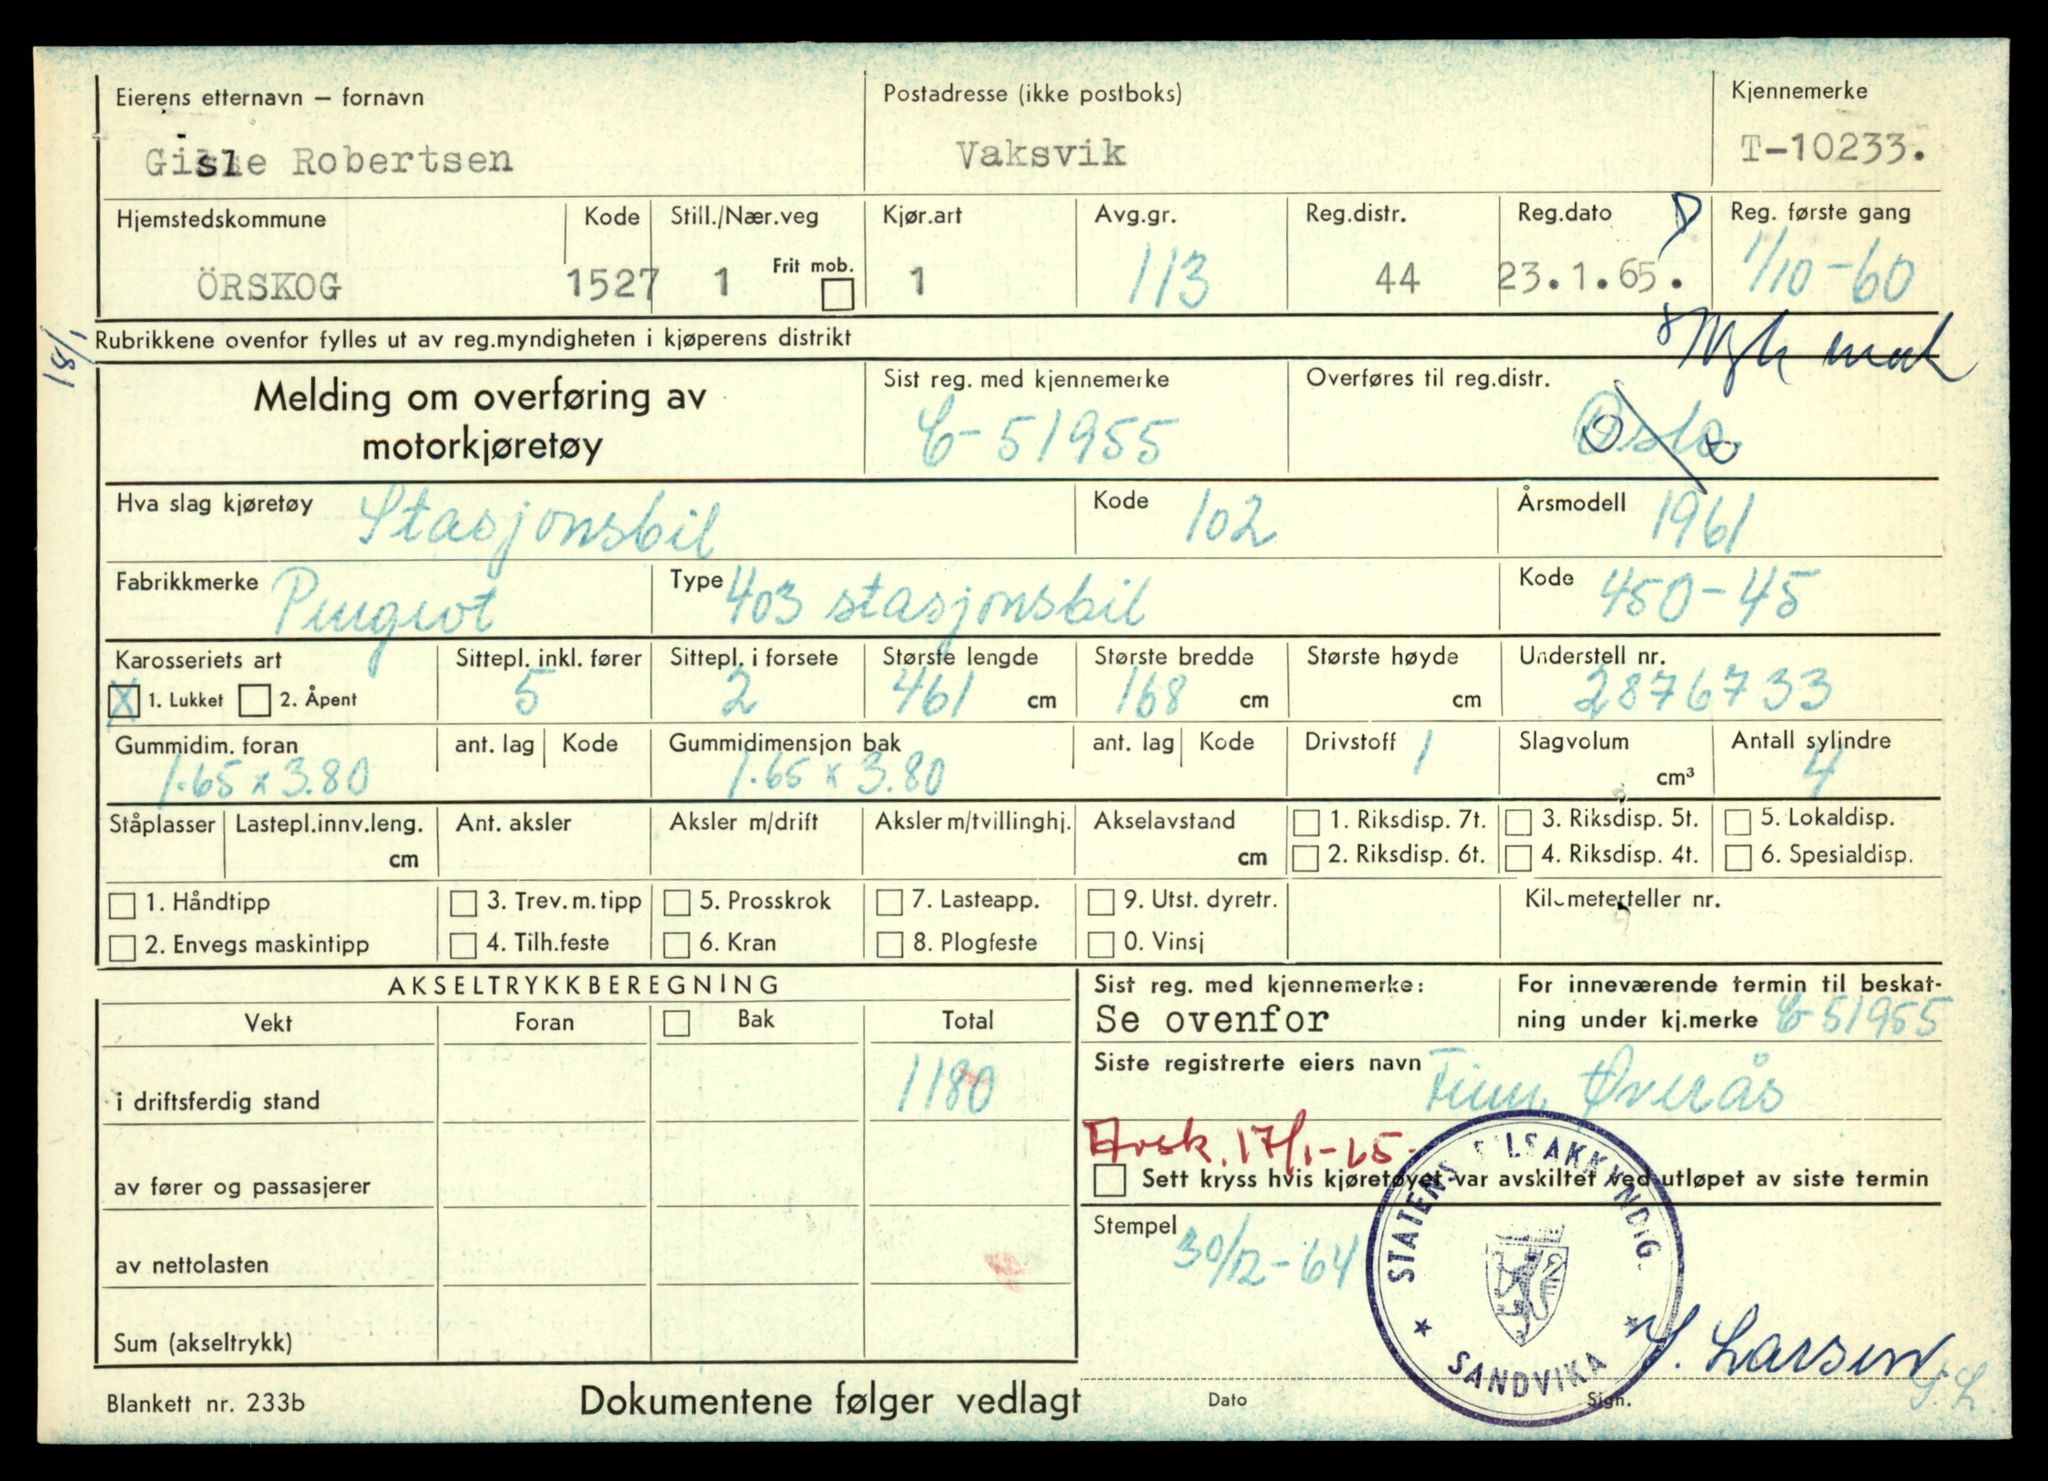 Eierens etternavn – fornavn
Gisle Robertsen
Postadresse (ikke postboks)
Vaksvik
Kjennemerke
T-10233.
Hjemstedskommune
ÖRSKOG
Kode
1527
Still./Nær.veg
1
Frit mob.
Kjør.art
1
Avg.gr.
113
Reg.distr.
44
Reg.dato
23.1.65.
Reg. første gang
1/10-60
Rubrikkene ovenfor fylles ut av reg.myndigheten i kjøperens distrikt
Melding om overføring av
motorkjøretøy
Sist reg. med kjennemerke
C-51955
Overføres til reg.distr.
Oslo
Hva slag kjøretøy
Stasjonsbil
Kode
102
Årsmodell
1961
Fabrikkmerke
Peugeot
Type
403 stasjonsbil
Kode
450-45
Karosseriets art
X 1. Lukket 2. Åpent
Sittepl. inkl. fører
5
Sittepl. i forsete
2
Største lengde
461 cm
Største bredde
168 cm
Største høyde
cm
Understell nr.
2876733
Gummidim. foran
1.65 x 3.80
ant. lag
Kode
Gummidimensjon bak
1.65 x 3.80
ant. lag
Kode
Drivstoff
1
Slagvolum
cm³
Antall sylindre
4
Ståplasser
Lastepl.innv.leng.
cm
Ant. aksler
Aksler m/drift
Aksler m/tvillinghj.
Akselavstand
cm
1. Riksdisp. 7t.
2. Riksdisp. 6t.
3. Riksdisp. 5t.
4. Riksdisp. 4t.
5. Lokaldisp.
6. Spesialdisp.
1. Håndtipp
2. Envegs maskintipp
3. Trev. m. tipp
4. Tilh.feste
5. Prosskrok
6. Kran
7. Lasteapp.
8. Plogfeste
9. Utst. dyretr.
0. Vinsj
Kilometerteller nr.
AKSELTRYKKBEREGNING
Vekt
Foran
Bak
Total
i driftsferdig stand
1180
av fører og passasjerer
av nettolasten
Sum (akseltrykk)
Sist reg. med kjennemerke:
Se ovenfor
For inneværende termin til beskat-
ning under kj.merke C-51955
Siste registrerte eiers navn Finn Øverås
Avsk. 17/1-65.
Sett kryss hvis kjøretøyet var avskiltet ved utløpet av siste termin
Stempel
30/12-64
STATENS BILSAKKYNDIG.
SANDVIKA
S. Larsen
S.L.
Dato
Sign.
Blankett nr. 233b
Dokumentene følger vedlagt